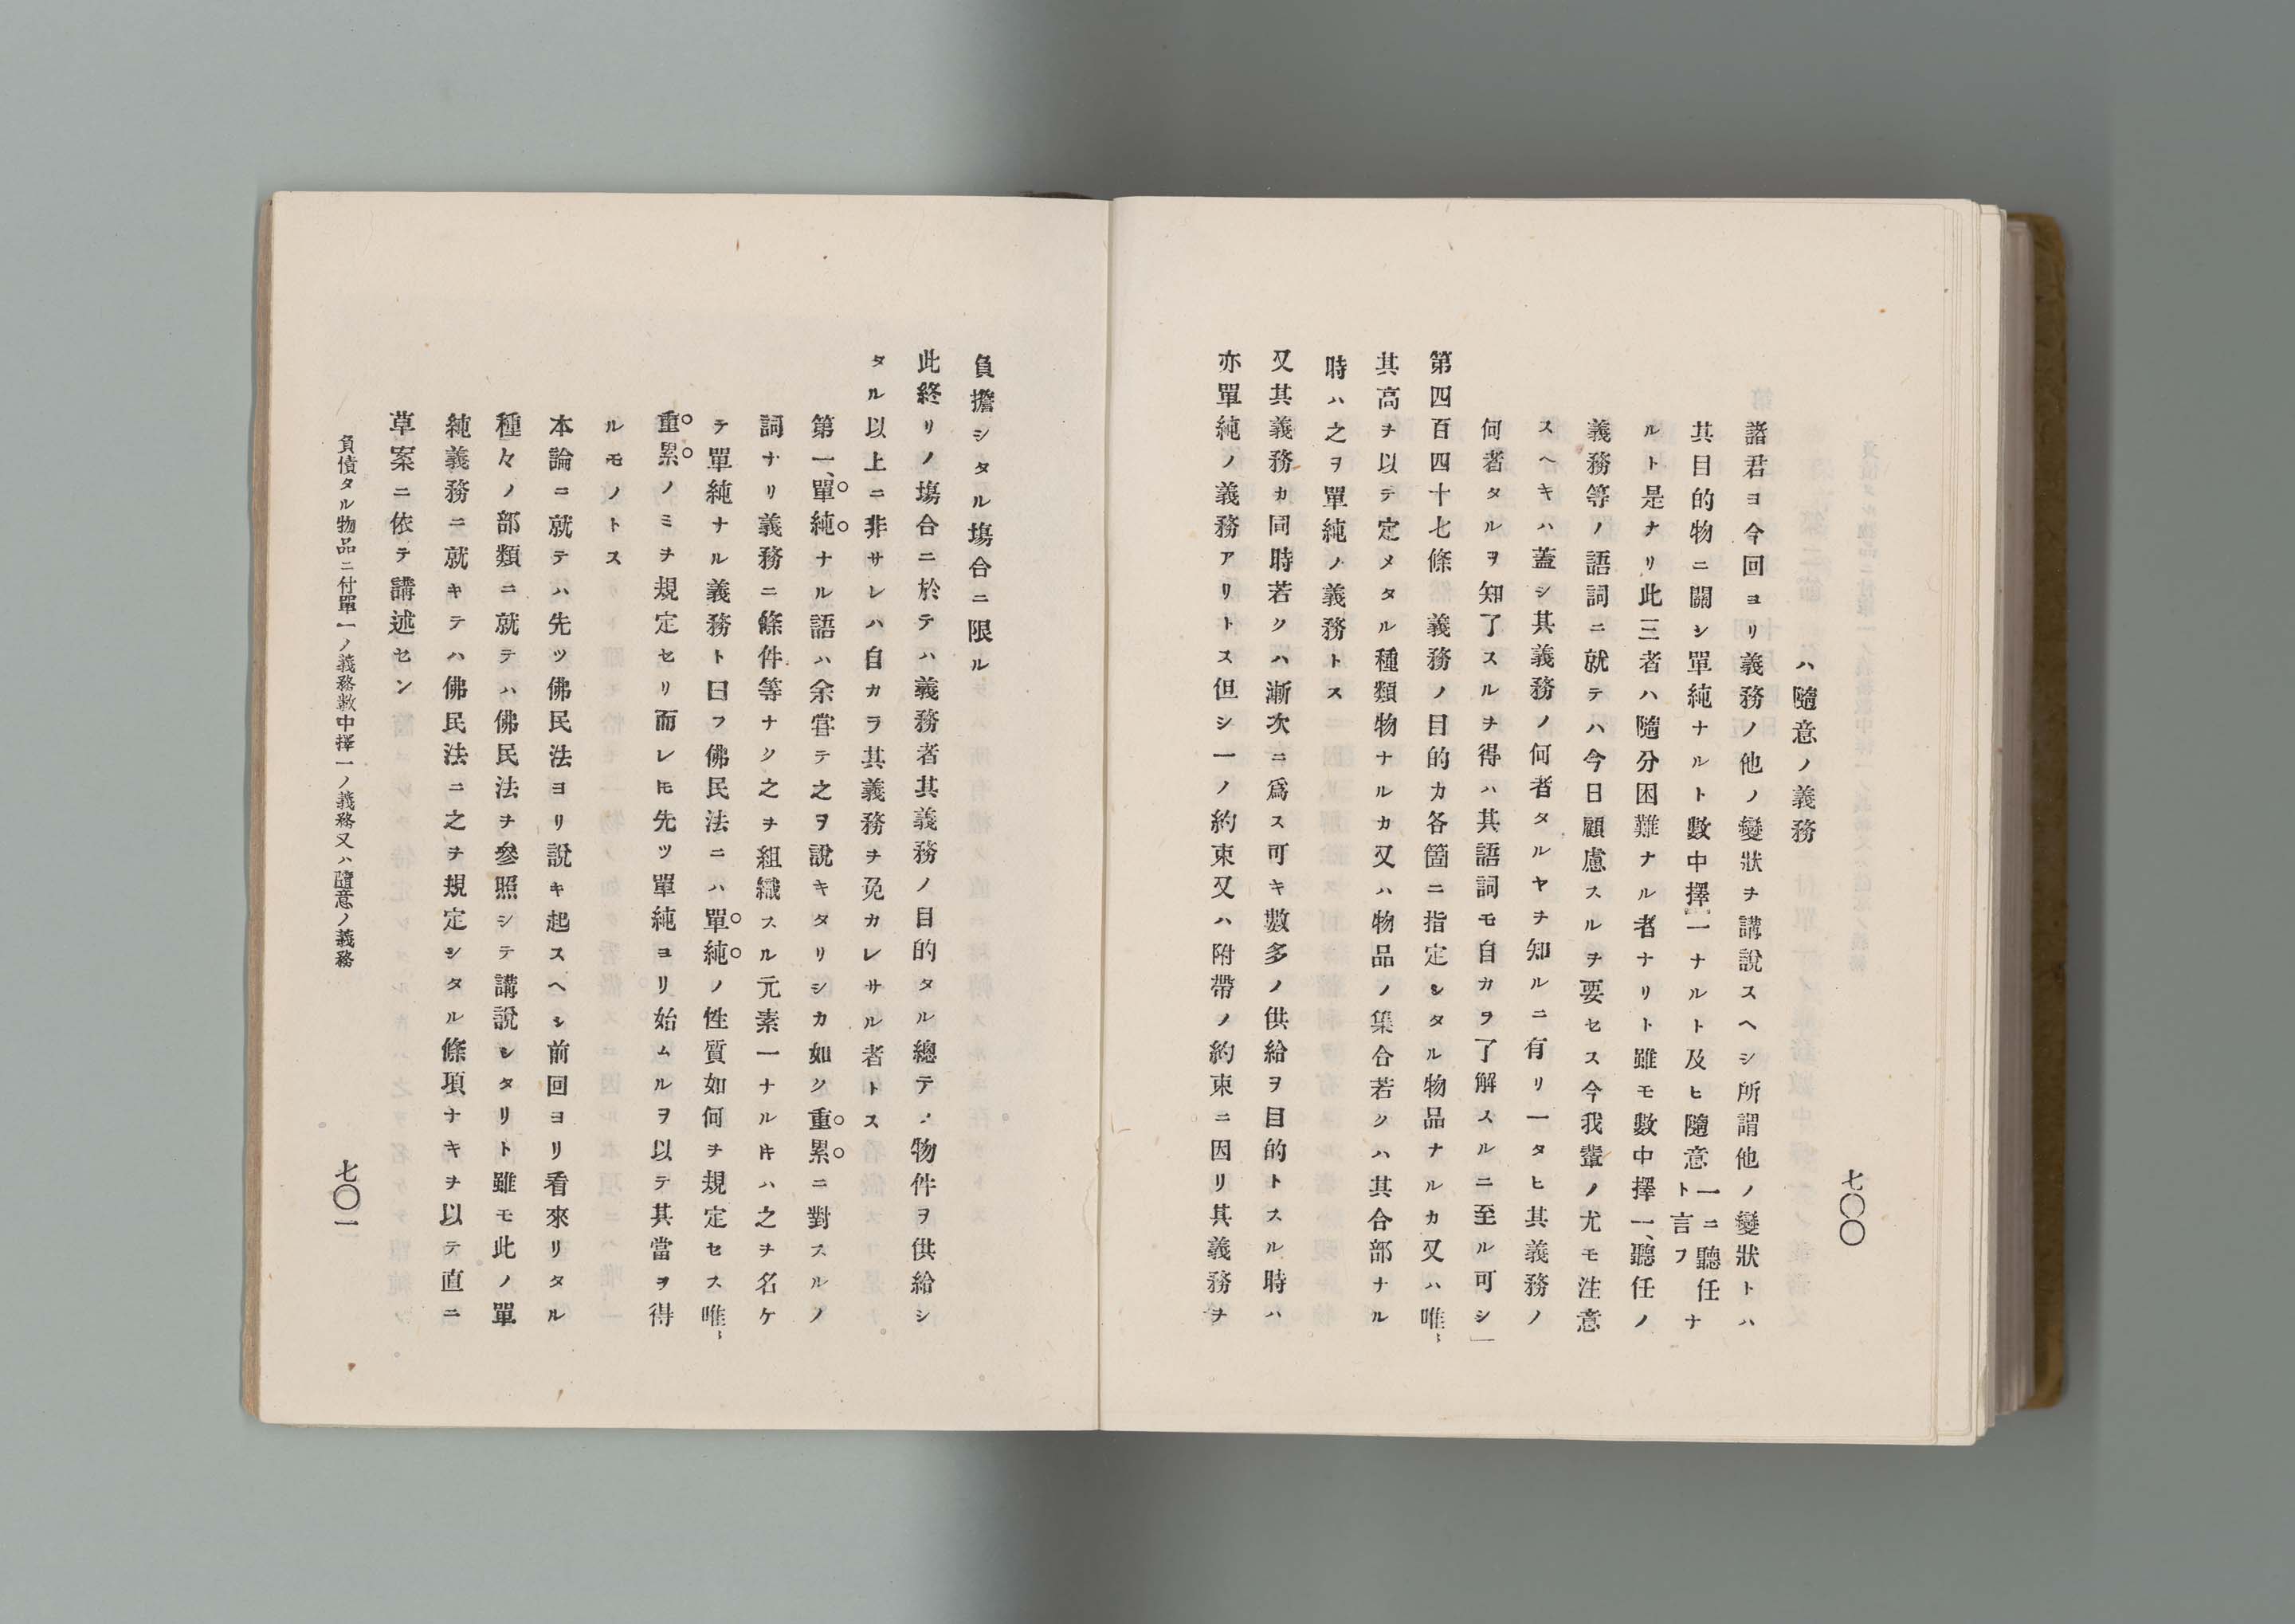 七〇〇
ハ隨意ノ義務
諸君ヨ今回ヨリ義務ノ他ノ變狀ヲ講說スヘシ所謂他ノ變狀トハ
其目的物ニ關シ單純ナルト數中擇一ナルト及ヒ隨意一ニ聽任ト言フナ
ルト是ナリ此三者ハ隨分困難ナル者ナリト雖モ數中擇一、聽任ノ
義務等ノ語詞ニ就テハ今日顧慮スルヲ要セス今我輩ノ尤モ注意
スヘキハ蓋シ其義務ノ何者タルヤヲ知ルニ有リ一タヒ其義務ノ
何者タルヲ知了スルヲ得ハ其語詞モ自カラ了解スルニ至ル可シ」
第四百四十七條　義務ノ目的カ各箇ニ指定シタル物品ナルカ又ハ唯々
其高ヲ以テ定メタル種類物ナルカ又ハ物品ノ集合若クハ其合部ナル
時ハ之ヲ單純ノ義務トス
又其義務カ同時若クハ漸次ニ爲ス可キ數多ノ供給ヲ目的トスル時ハ
亦單純ノ義務アリトス但シ一ノ約束又ハ附帶ノ約束ニ因リ其義務ヲ
負擔シタル塲合ニ限ル
此終リノ塲合ニ於テハ義務者其義務ノ目的タル總テノ物件ヲ供給シ
タル以上ニ非サレハ自カラ其義務ヲ免カレサル者トス
第一、單純ナル語ハ余甞テ之ヲ說キタリシカ如ク重累ニ對スルノ
詞ナリ義務ニ條件等ナク之ヲ組織スル元素一ナルキハ之ヲ名ケ
テ單純ナル義務ト曰フ佛民法ニハ單純ノ性質如何ヲ規定セス唯々
重累ノミヲ規定セリ而レㇳモ先ツ單純ヨリ始ムルヲ以テ其當ヲ得
ルモノトス
本論ニ就テハ先ツ佛民法ヨリ說キ起スヘシ前回ヨリ看來リタル
種々ノ部類ニ就テハ佛民法ヲ參照シテ講說シタリト雖モ此ノ單
純義務ニ就キテハ佛民法ニ之ヲ規定シタル條項ナキヲ以テ直ニ
草案ニ依テ講述セン
負債タル物品ニ付單一ノ義務數中擇一ノ義務又ハ隨意ノ義務
七〇一